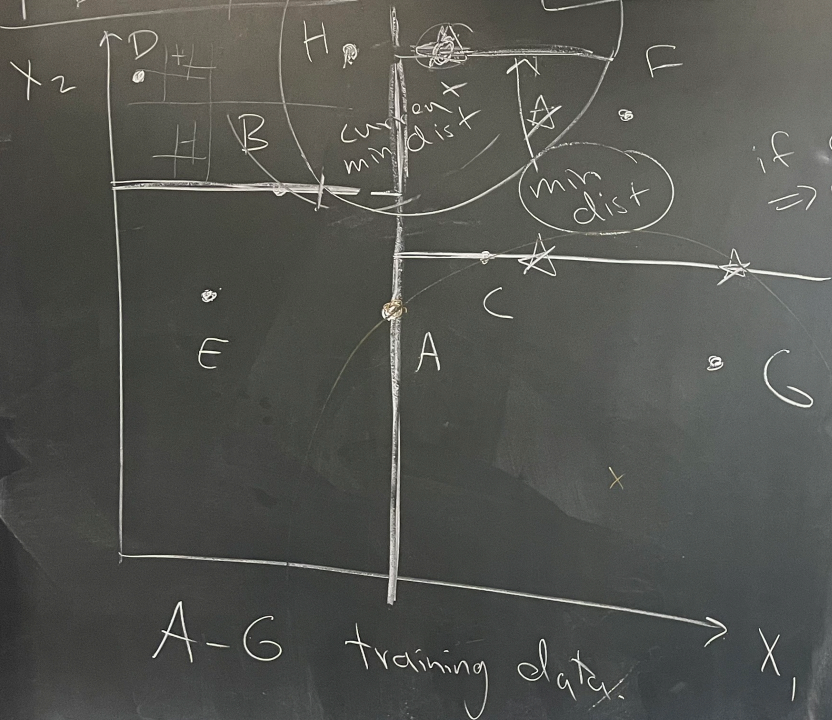 D
H
F
X2
B
current
min dist
if
=>
min
dist
C
E
A
G
x
A-G training data.
X1